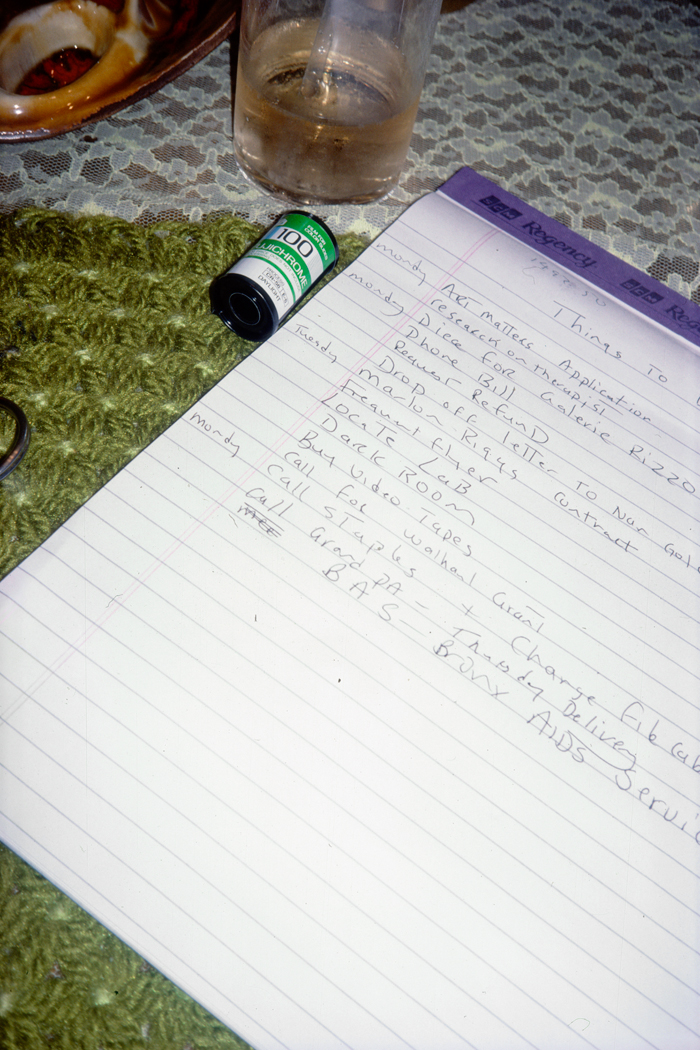 100
FUJICHROME
DAYLIGHT
Regency
Things To
mondy Art matters Application
research on therapist
mondy Diece for Galerie Rizzo
Phone Bill
Request Refund
Tuesdy Drop off letter To Nan Gol
Marlon Riggs contract
Frequent flyer
Locate Lab
Darck Room
Buy video Tapes
mondy Call for walhaul Grant
Call staples + Charge Fib cab
Call Grand pa - Thursdy Delivery
BAS - Bronx AIDS Servic